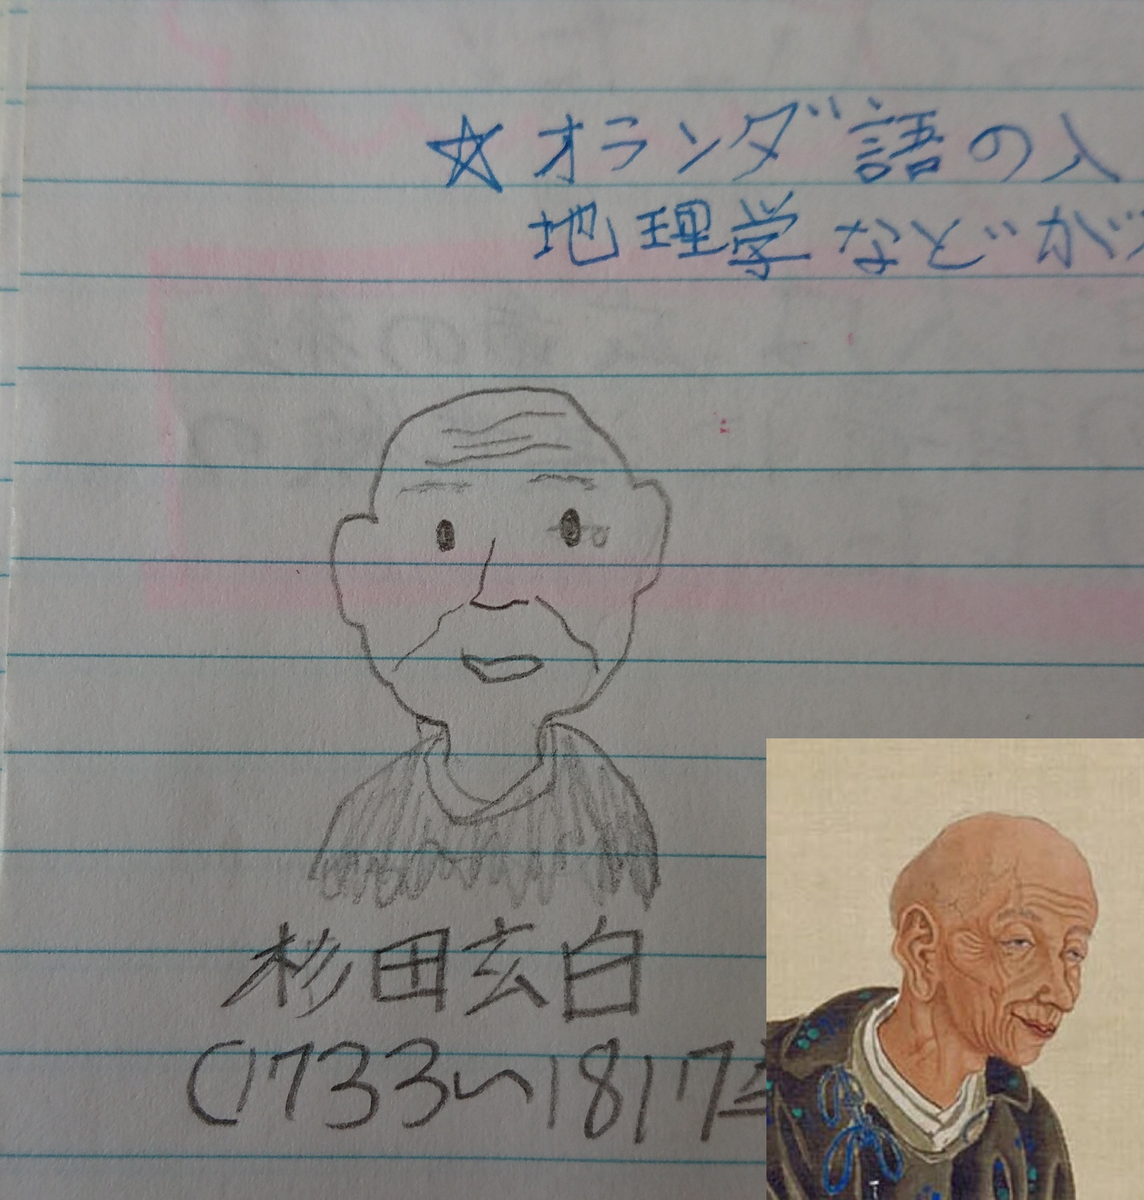 ☆オランダ語の入
地理学などが
杉田玄白
(1733〜1817